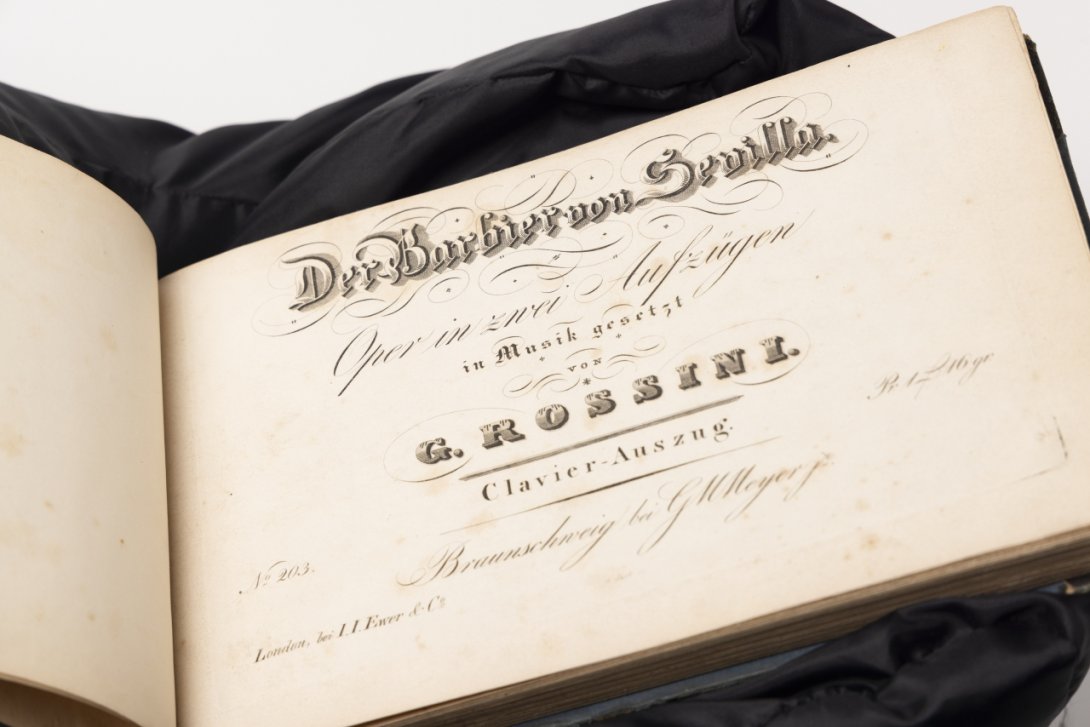 Der Barbier von Sevilla.
Oper in zwei Aufzügen
in Musik gesetzt
von
G. ROSSINI.
Clavier-Auszug.
Pr. 1 16 gr
Braunschweig bei G M Meyer jr.
No 203.
London, bei I. I. Ewer & Co